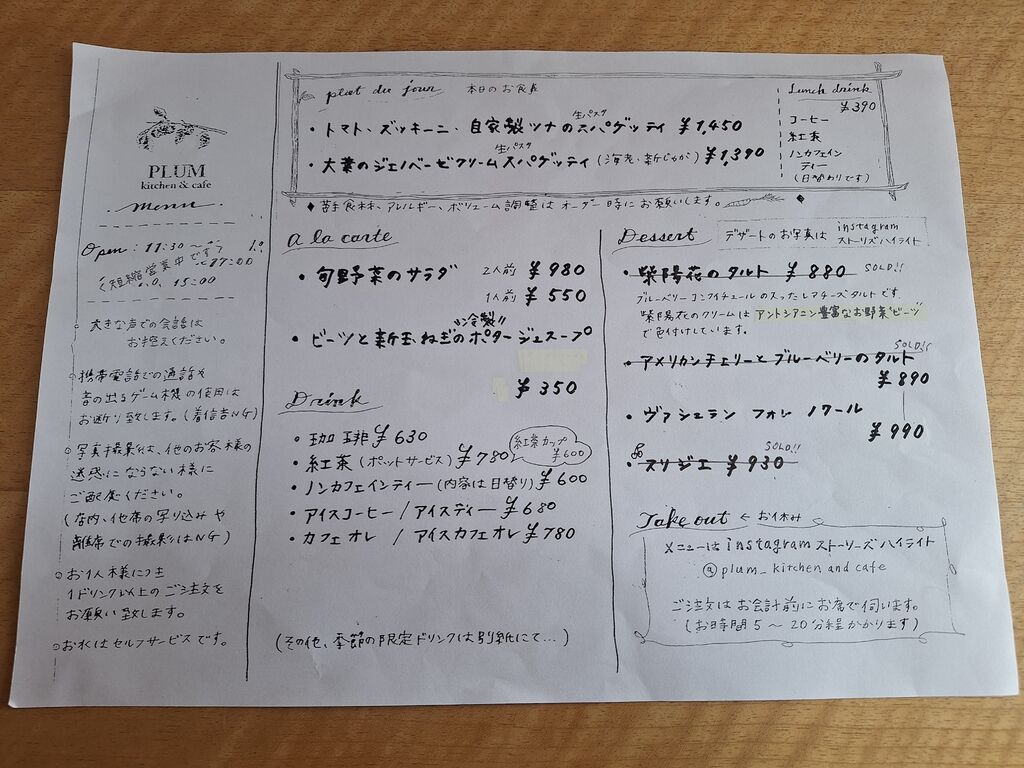 PLUM
kitchen & cafe
menu
Open : 11:30 〜
(短縮営業中です)
17:00
15:00
○大きな声での会話は
お控えください。
○携帯電話での通話や
音の出るゲーム機の使用は
お断り致します。(着信音NG)
○写真撮影は、他のお客様の
迷惑にならない様に
ご配慮ください。
(店内、他席の写り込みや
離席での撮影はNG)
○お1人様につき
1ドリンク以上のご注文を
お願い致します。
○お水はセルフサービスです。
plat du jour 本日のお食事
生パスタ
・トマト、ズッキーニ、自家製ツナのスパゲッティ ¥1,450
生パスタ
・大葉のジェノベーゼクリームスパゲッティ (海老・新じゃが) ¥1,390
Lunch drink
¥390
コーヒー
紅茶
ノンカフェイン
ティー
(日替わりです)
◆苦手食材、アレルギー、ボリューム調整はオーダー時にお願いします。
a la carte
・旬野菜のサラダ 2人前 ¥980
1人前 ¥550
"冷製"
・ビーツと新玉ねぎのポタージュスープ
¥350
Drink
・珈琲 ¥630
・紅茶 (ポットサービス) ¥780
紅茶カップ
¥600
・ノンカフェインティー (内容は日替り) ¥600
・アイスコーヒー / アイスティー ¥680
・カフェオレ / アイスカフェオレ ¥780
(その他、季節の限定ドリンクは別紙にて…)
Dessert デザートのお写真は instagram
ストーリーズハイライト
・紫陽花のタルト ¥880 SOLD!!
ブルーベリーコンフィチュールの入ったレアチーズタルトです。
紫陽花のクリームはアントシアニン豊富なお野菜"ビーツ"
で色付けしています。
SOLD!!
・アメリカンチェリーとブルーベリーのタルト
¥890
・ヴァシュラン フォレ ノワール
¥990
SOLD!!
・スリジエ ¥930
Take out ← お休み
メニューは instagram ストーリーズハイライト
@plum_kitchen and cafe
ご注文はお会計前にお席で伺います。
(お時間 5 〜 20分程かかります)